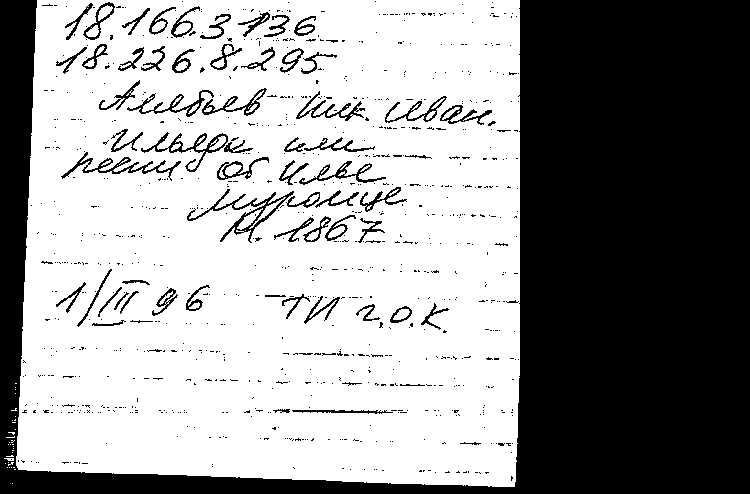 18.166.3.136
18.226.8.295
Алябьев Ник. Иван.
или
песни об Илье
Муромце
М. 1867
1/III 96 ТИ г.о.к.